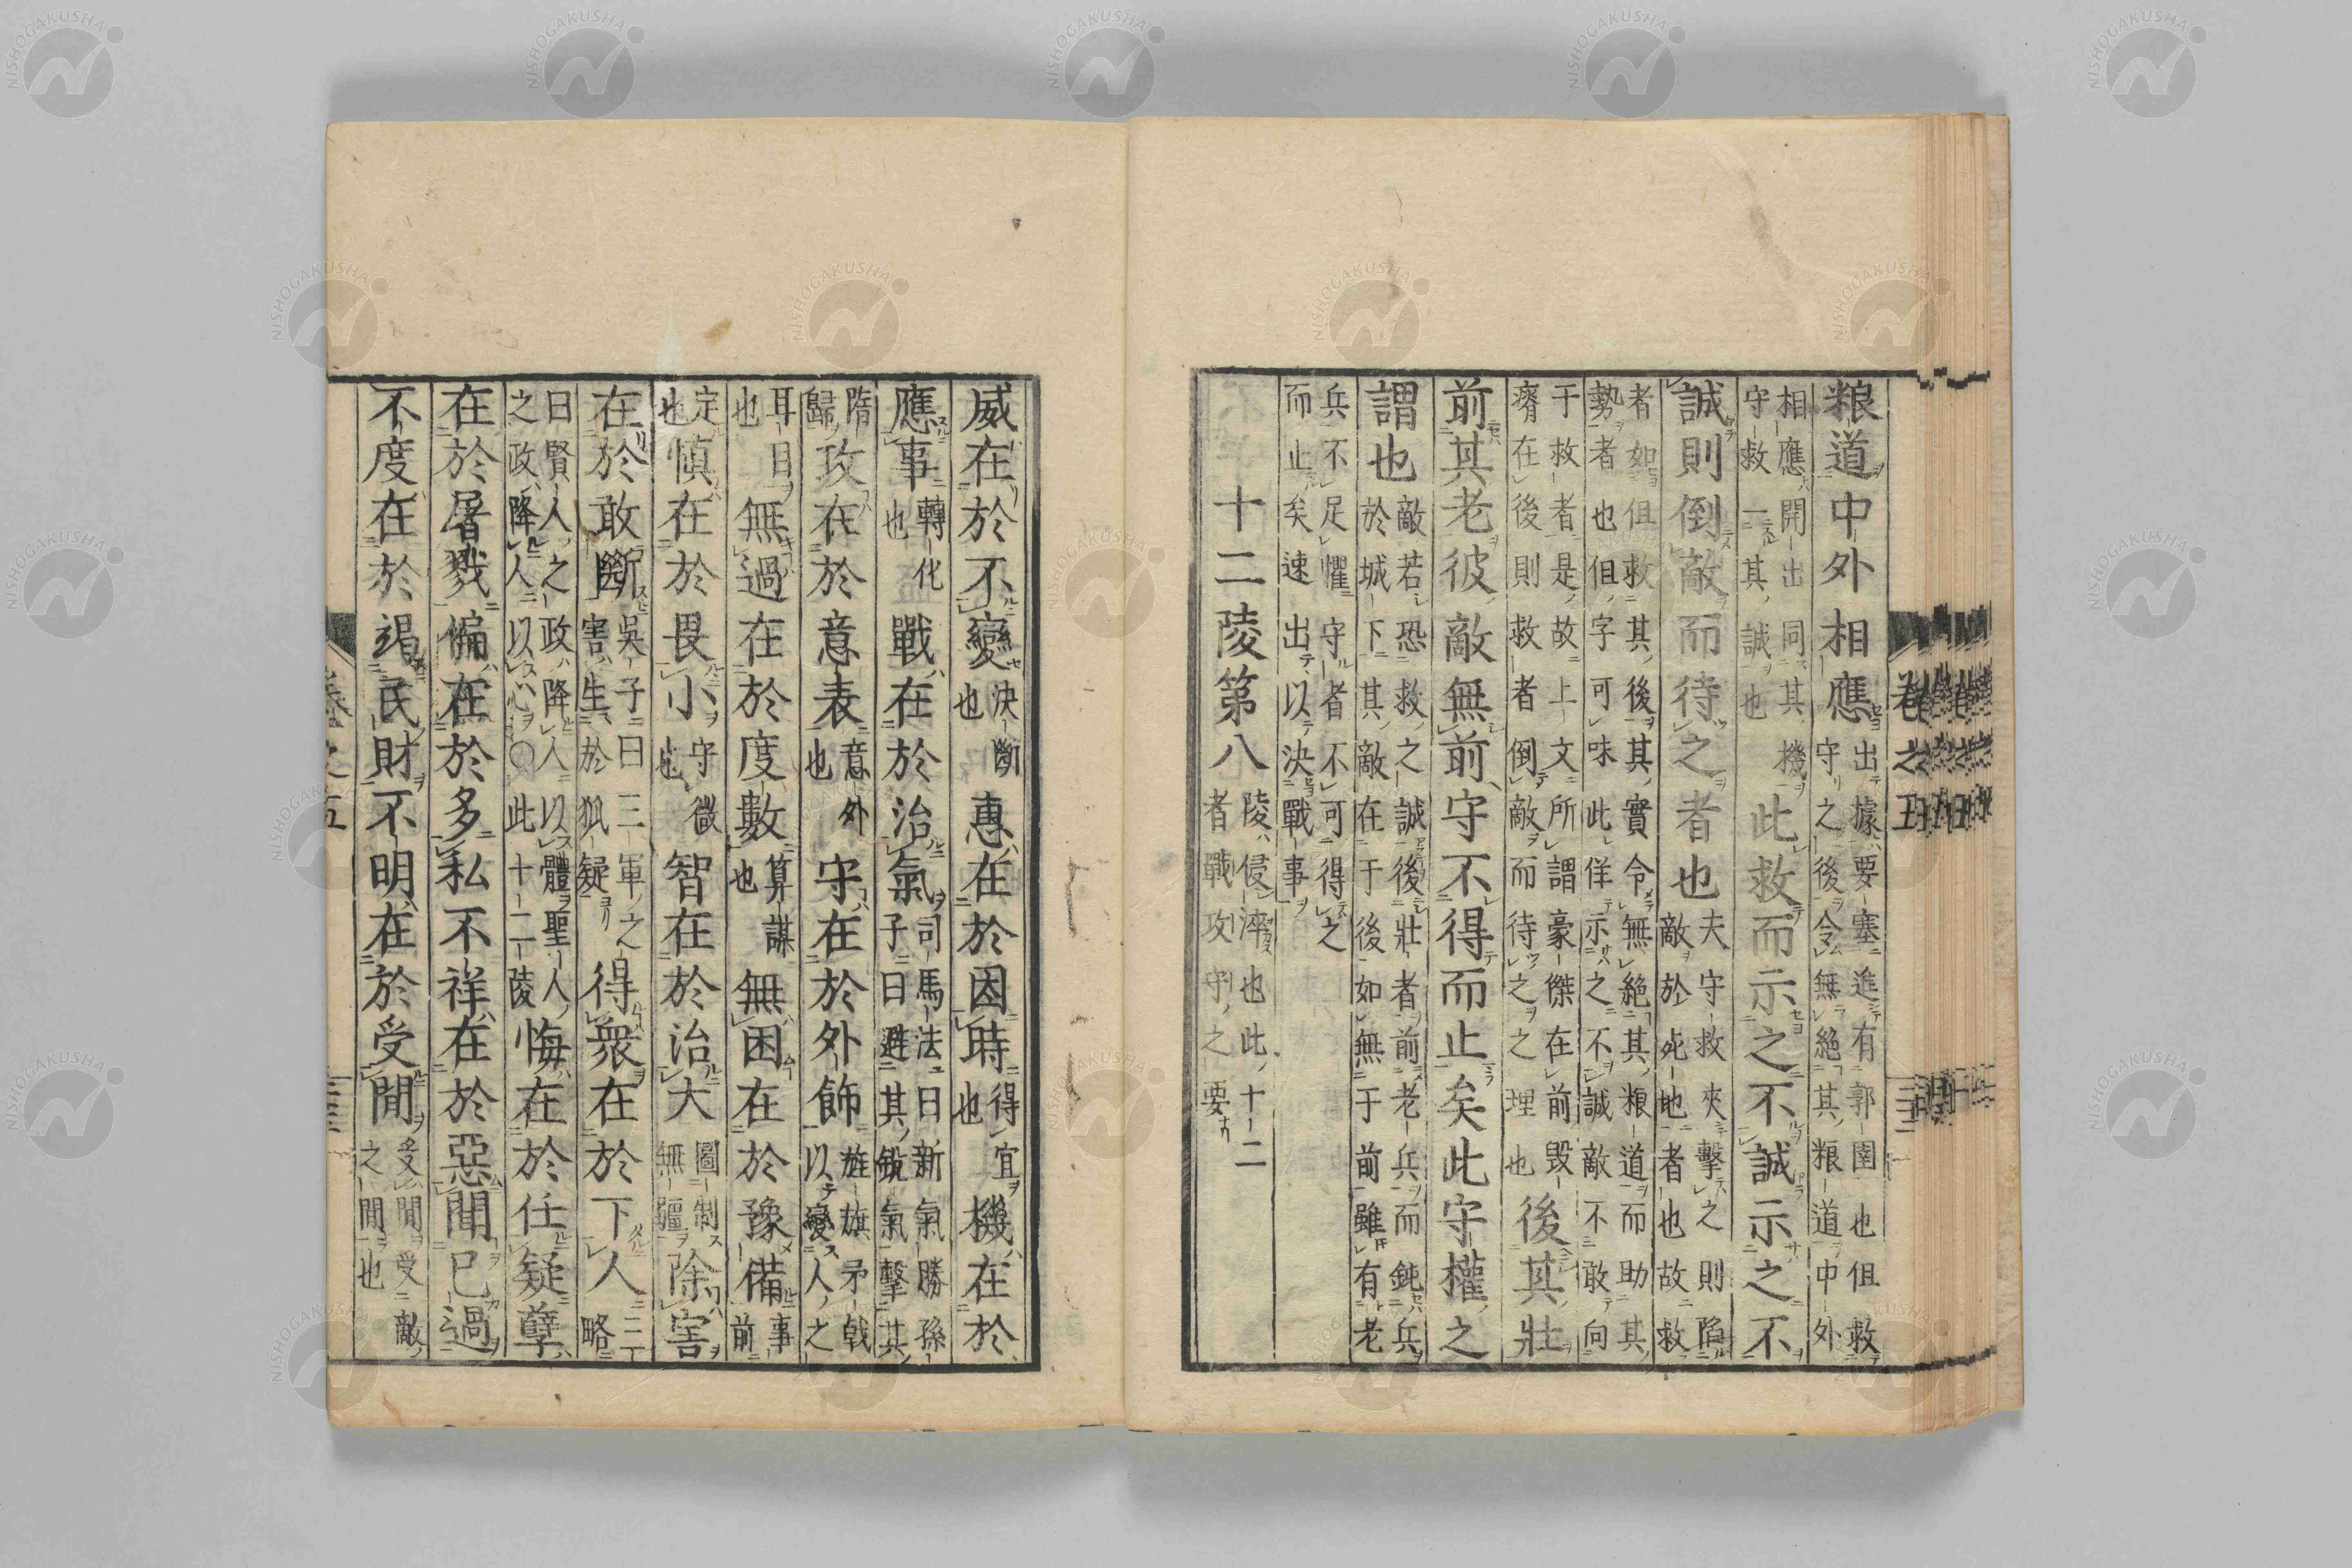 粮道中外相應出據要塞進有郭圉也但救守之後令無絕其粮道中外
相應開出同其機守救一其誠也此救而示之不誠示之不
誠則倒敵而待之者也夫守救夾擊之則陷敵於死地者也故救
者如但救其後其實令無絕其粮道而助其勢者也但字可味此佯示之不誠敵不敢向
于救者是故上文所謂豪傑在前毀瘠在後則救者倒敵而待之之理也後其壯
前其老彼敵無前守不得而止矣此守權之
謂也敵若恐救之誠後壯者前老兵而鈍兵於城下其敵在于後如無于前雖有老
兵不足懼守者不可得之而止矣速出以決戰事
十二陵第八陵侵淬也此十二者戰攻守之要
威在於不變決斷也惠在於因時得宜也機在於
應事轉化也戰在於治氣司馬法曰新氣勝孫子曰避其銳氣擊其
隋歸攻在於意表意外也守在於外飾旌旗矛戟以變人之
耳目也無過在於度數算謀也無困在於豫備事前
定也慎在於畏小守微也智在於治大圖制無疆除害
在於敢斷吳子曰三軍之害生於狐疑得衆在於下人三略
曰賢人之政降人以體聖人之政降人以心〇此十二陵悔在於任疑孽
在於屠戮偏在於多私不祥在於惡聞己過
不度在於竭民財不明在於受間受間受敵之間也
卷之五
卷之五